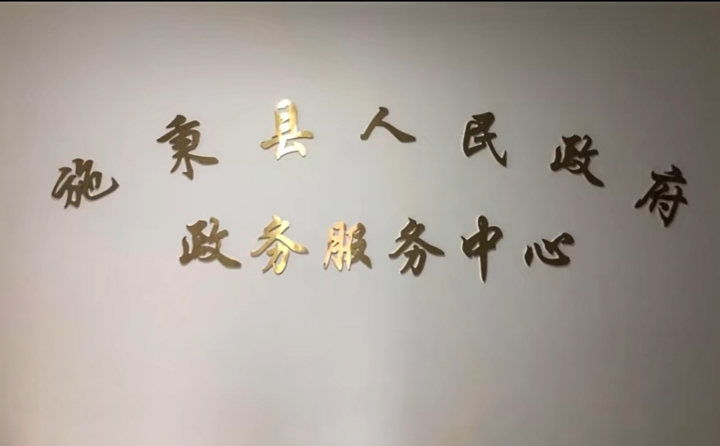 施秉县人民政府
政务服务中心